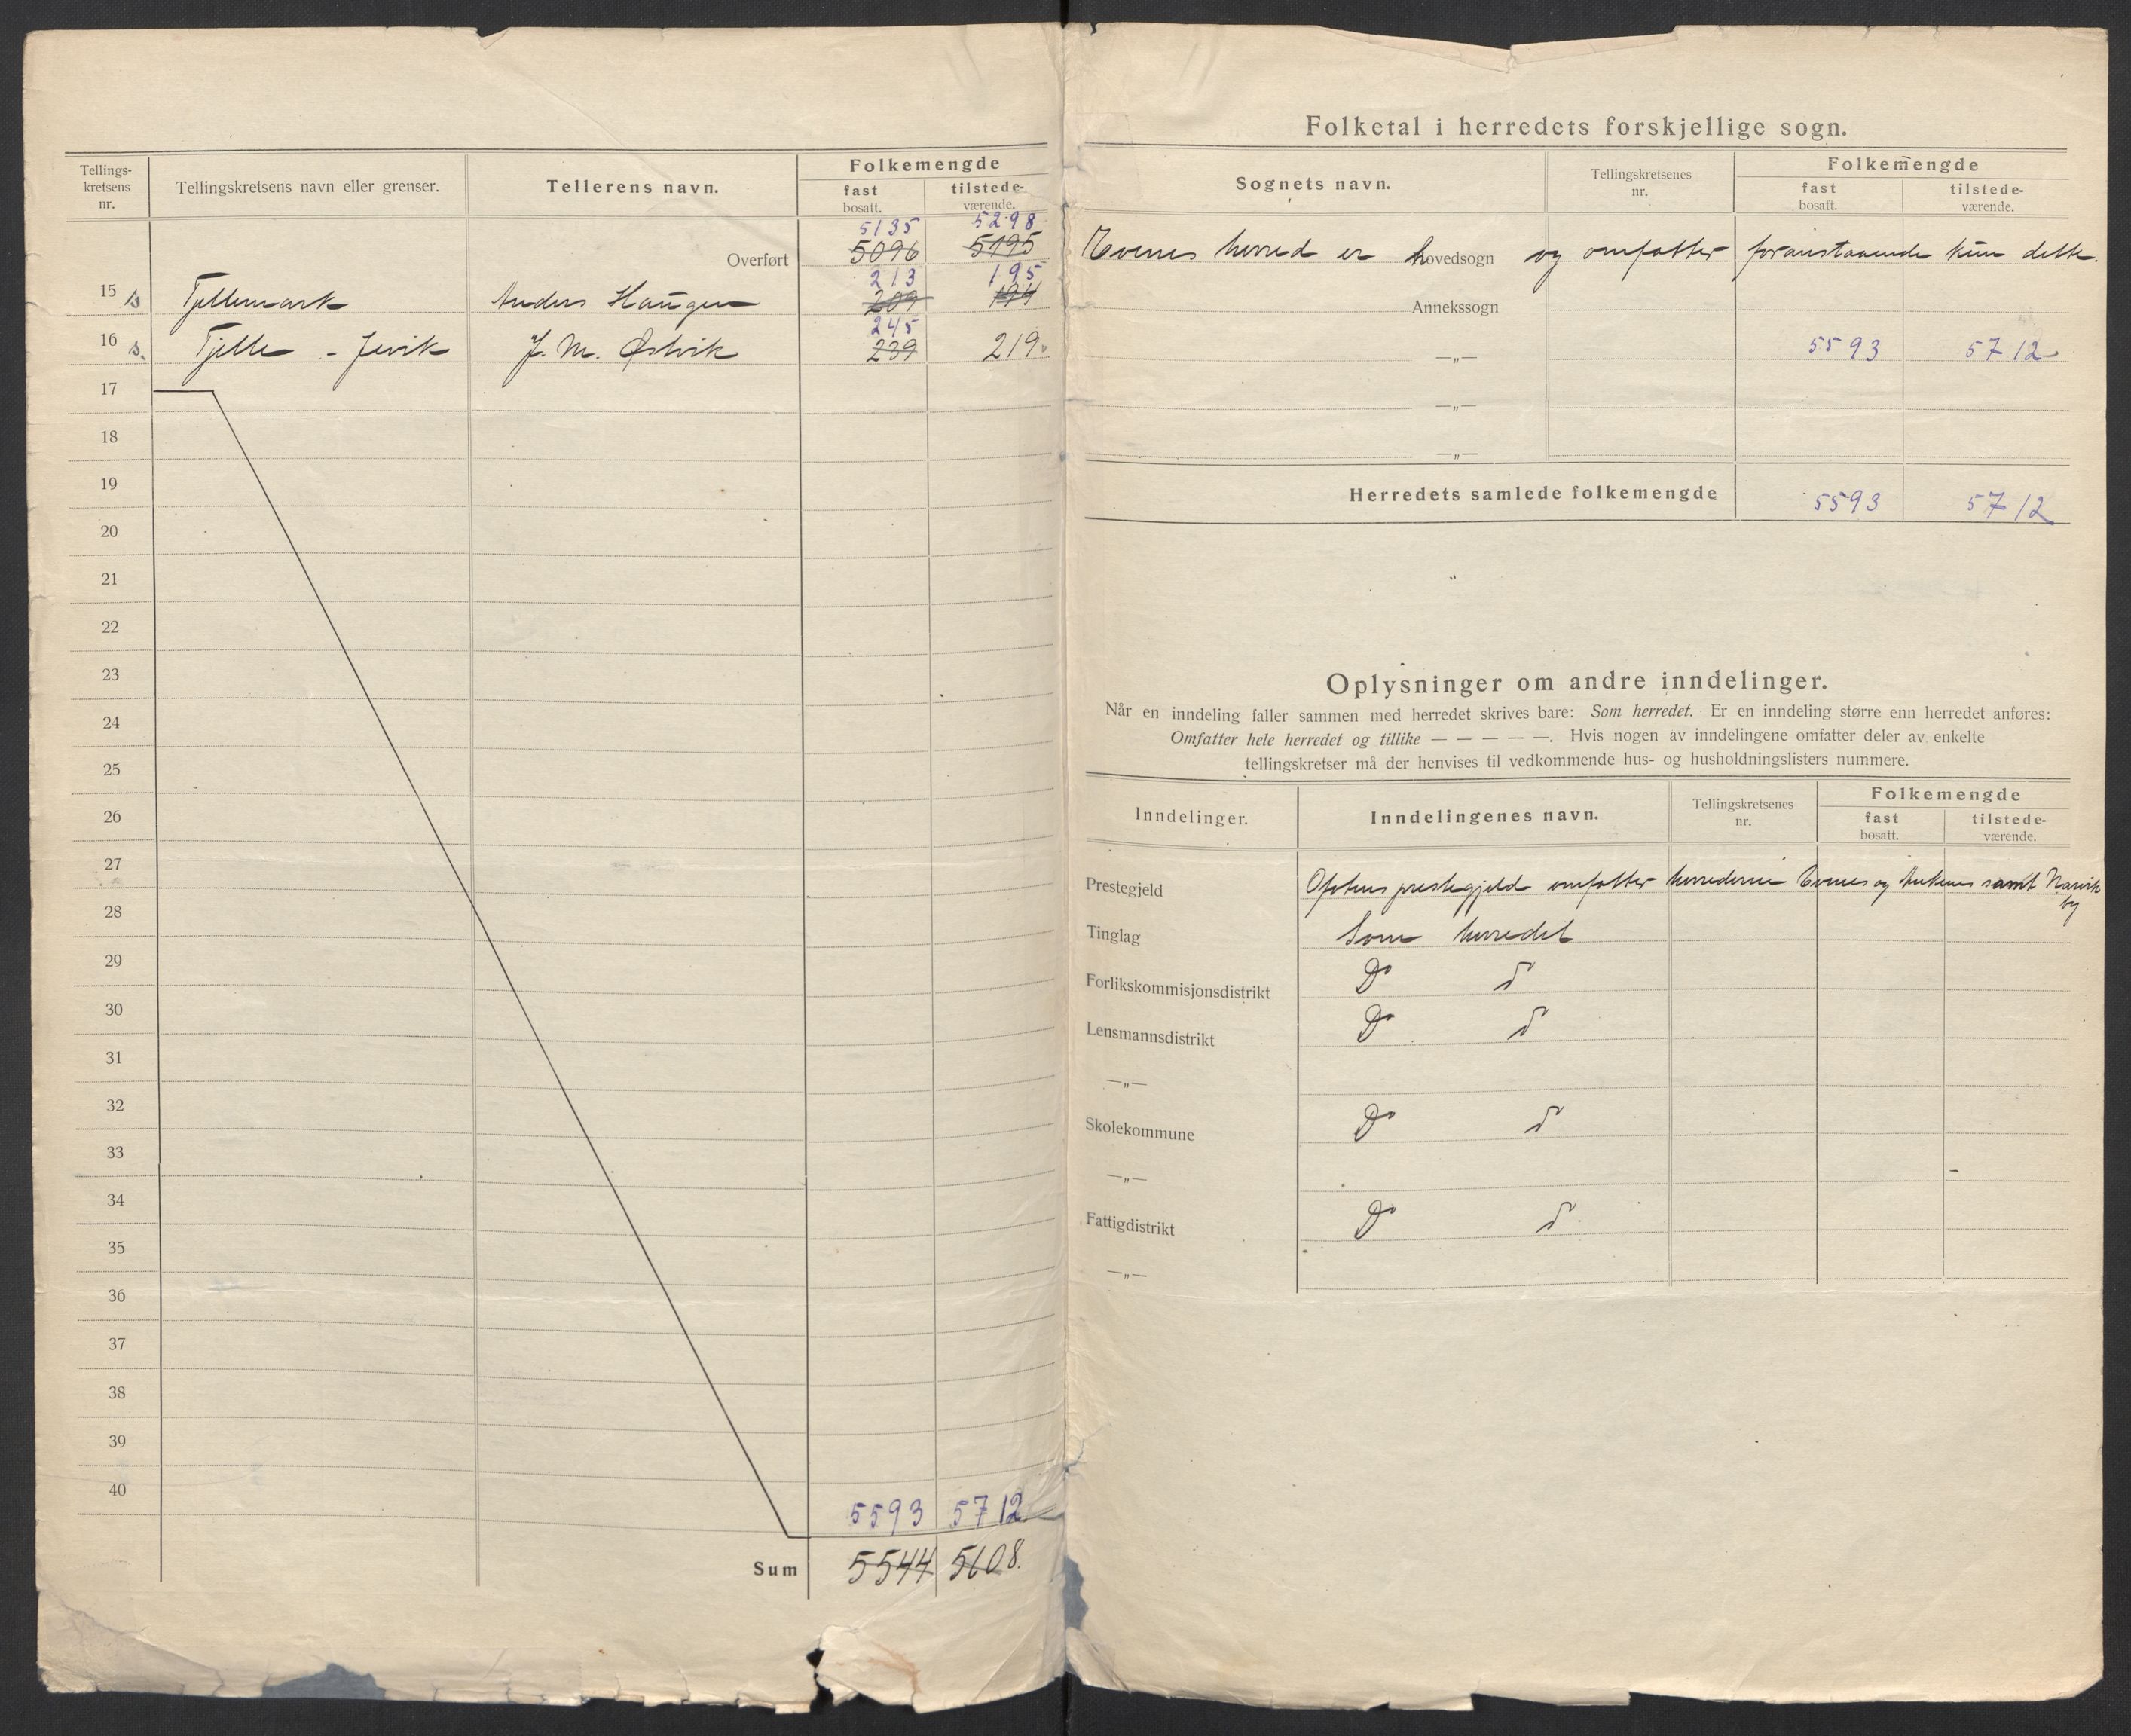 Tellings-
kretsens
nr.
Tellingskretsens navn eller grenser.
Tellerens navn.
Folkemengde
fast
bosatt.
tilstede-
værende.
5135 5298
Overført 5096 5195
213 195
15 s Tjellemark Anders Haugen 209 194
245
16 s. Tjelle - Jevik J. M. Østvik 239 219.
17
18
19
20
21
22
23
24
25
26
27
28
29
30
31
32
33
34
35
36
37
38
39
40
5593 5712
Sum 5544 5608.
Folketal i herredets forskjellige sogn.
Sognets navn.
Tellingskretsenes
nr.
Folkemengde
fast
bosatt.
tilstede-
værende.
Evenes herred er hovedsogn og omfatter foranstaaende kun dette.
Annekssogn
—„— 5593 5712
—„—
—„—
Herredets samlede folkemengde 5593 5712
Oplysninger om andre inndelinger.
Når en inndeling faller sammen med herredet skrives bare: Som herredet. Er en inndeling større enn herredet anføres:
Omfatter hele herredet og tillike — — — — —. Hvis nogen av inndelingene omfatter deler av enkelte
tellingskretser må der henvises til vedkommende hus- og husholdningslisters nummere.
Inndelinger.
Inndelingenes navn.
Tellingskretsenes
nr.
Folkemengde
fast
bosatt.
tilstede-
værende.
Prestegjeld Ofotens prestegjeld omfatter herrederne Evenes og Ankenes samt Narvik
by
Tinglag Som herredet
Forlikskommisjonsdistrikt Do do
Lensmannsdistrikt Do do
—„—
Skolekommune Do do
—„—
Fattigdistrikt Do do
—„—